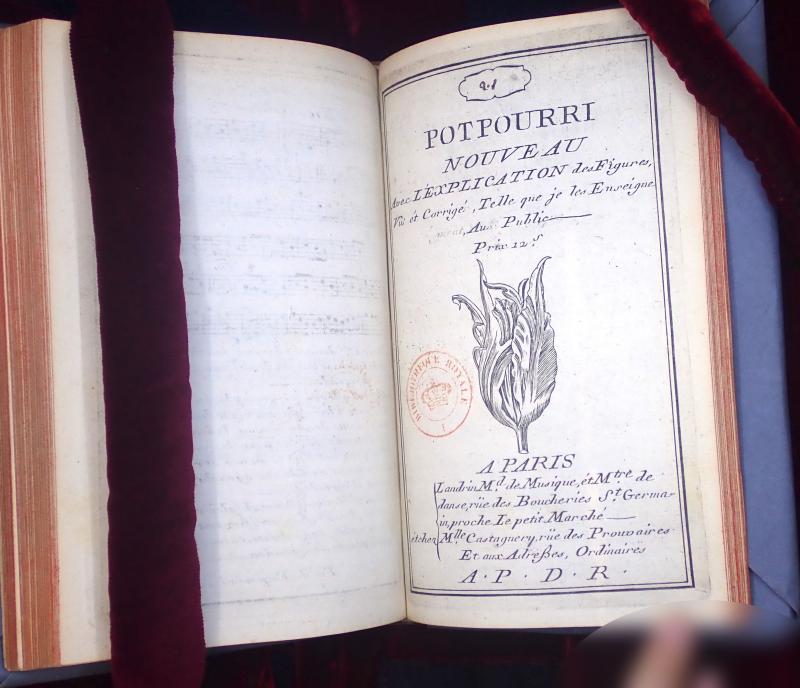 21
POTPOURRI
NOUVEAU
Avec L'EXPLICATION des Figures,
Vû et Corrigé, Telle que je les Enseigne
Aux Public
Prix 12.s
BIBLIOTHEQUE ROYALE
A PARIS
Landrin M.d de Musique, et M.tre de
danse, rüe des Boucheries S.t Germa-
in, proche Le petit Marché
et chez M.lle Castagnery, rüe des Prouvaires
Et aux Adreßes, Ordinaires
A·P·D·R·